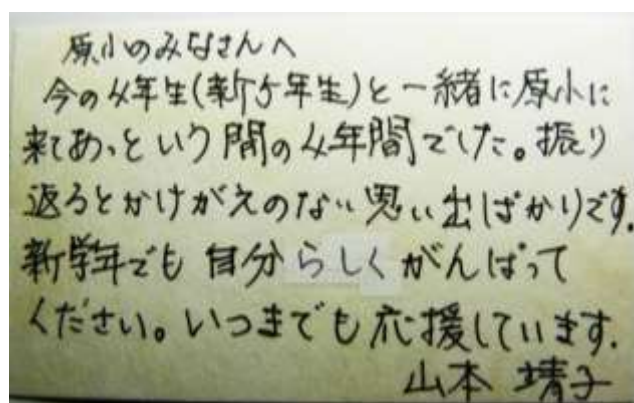 原小のみなさんへ
今の4年生(新5年生)と一緒に原小に
来てあっという間の4年間でした。振り
返るとかけがえのない思い出ばかりです。
新学年でも自分らしくがんばって
ください。いつまでも応援しています。
山本 靖子